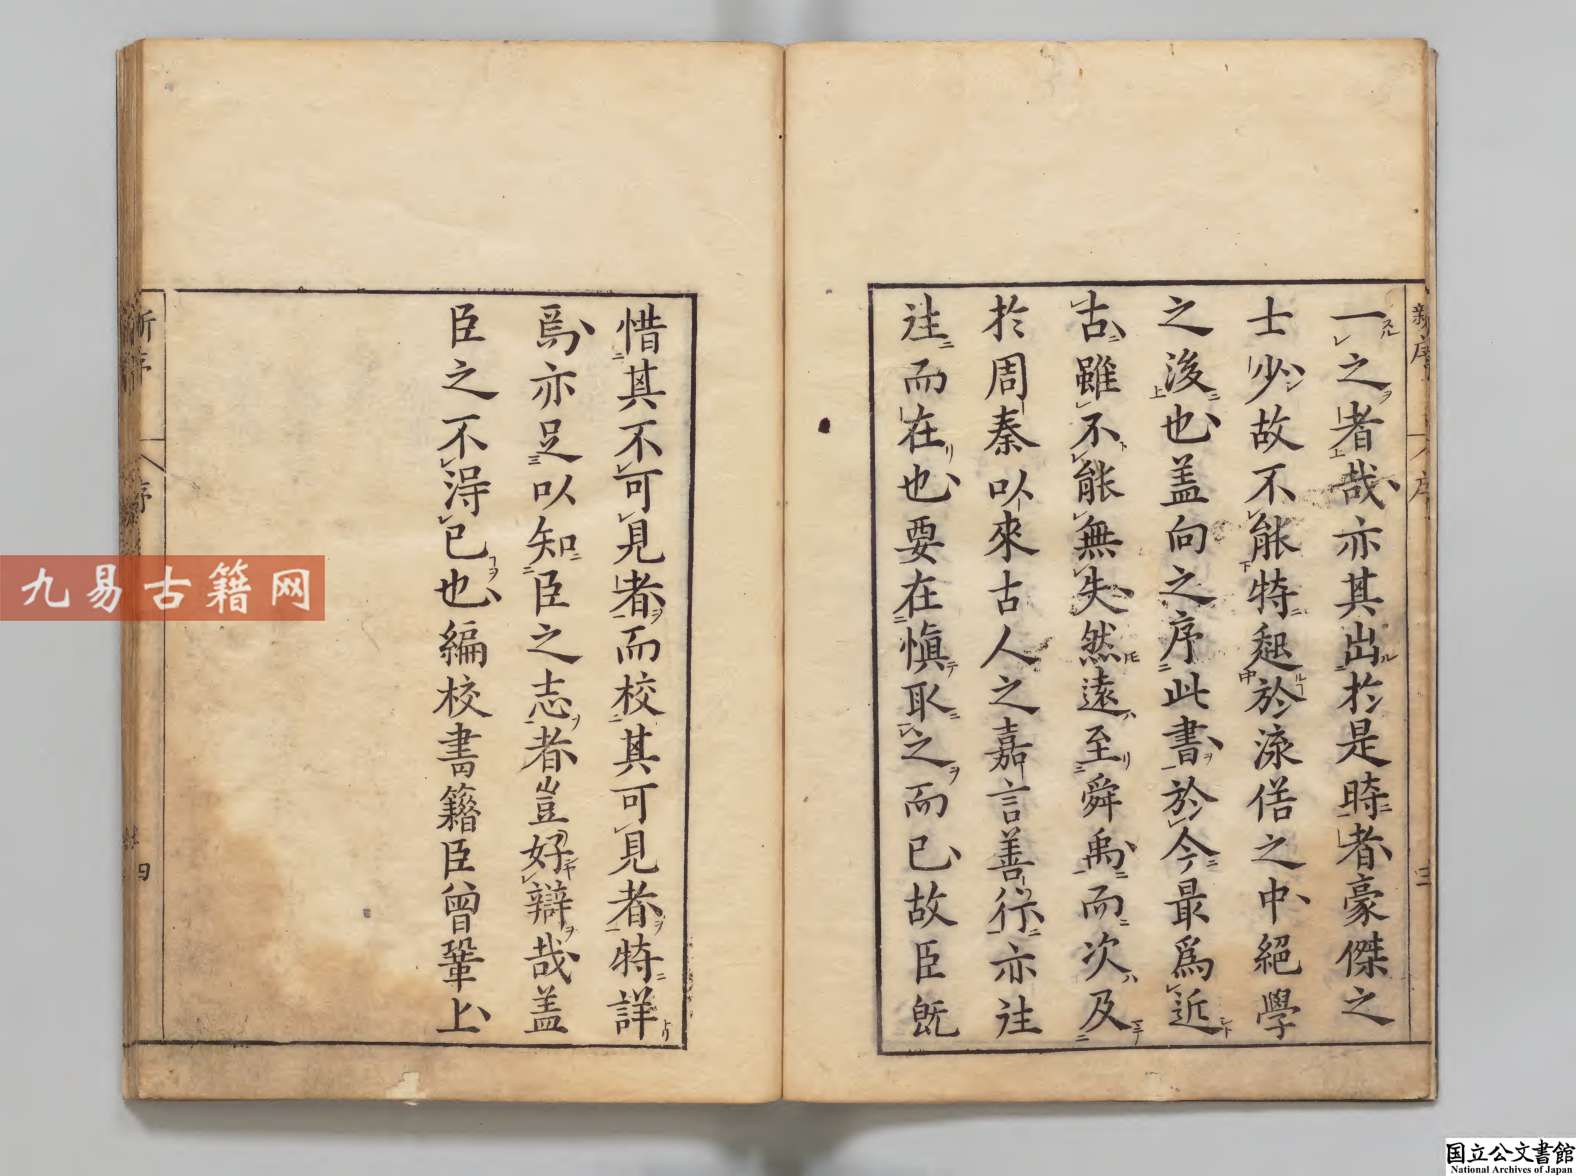 新序
序
三
一之者哉亦其出於是時者豪傑之
士少故不能特起於流俗之中絕學
之後也盖向之序此書於今最爲近
古雖不能無失然遠至舜禹而次及
於周秦以來古人之嘉言善行亦往
往而在也要在慎取之而已故臣旣
惜其不可見者而校其可見者特詳
焉亦足以知臣之志者豈好辯哉盖
臣之不得已也編校書籍臣曾鞏上
新序
序
四
九易古籍网
国立公文書館
National Archives of Japan